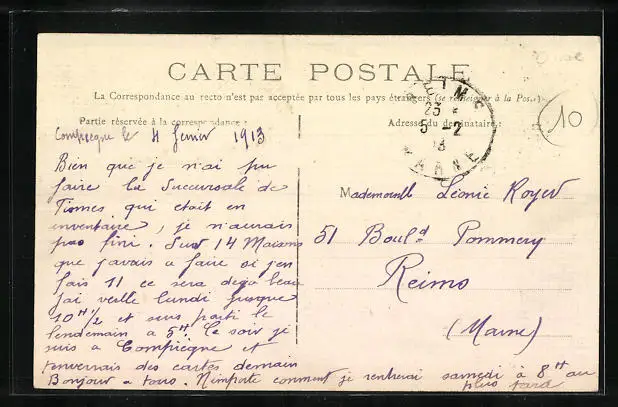 CARTE POSTALE
La Correspondance au recto n'est pas acceptée par tous les pays étrangers (se renseigner à la Poste)
Partie réservée à la correspondance :
Compiègne le 4 fevrier 1913
Bien que je n'ai pu
faire la Succursale de
qui etait en
inventaire, je n'aurais
pas fini. Sur 14 Maisons
que j'avais a faire si j'en
fais 11 ce sera deja beau
J'ai veille lundi jusque
10 H 1/2 et suis parti le
lendemain a 5 H. Ce soir je
suis a Compiègne et
enverrais des cartes demain
Bonjour a tous. N'importe comment je rentrerai samedi à 8 H au
plus tard
Adresse du destinataire :
REIMS
23
5 -2
13
MARNE
10
Mademoiselle Léonie Royer
51 Boul.d Pommery
Reims
(Marne)